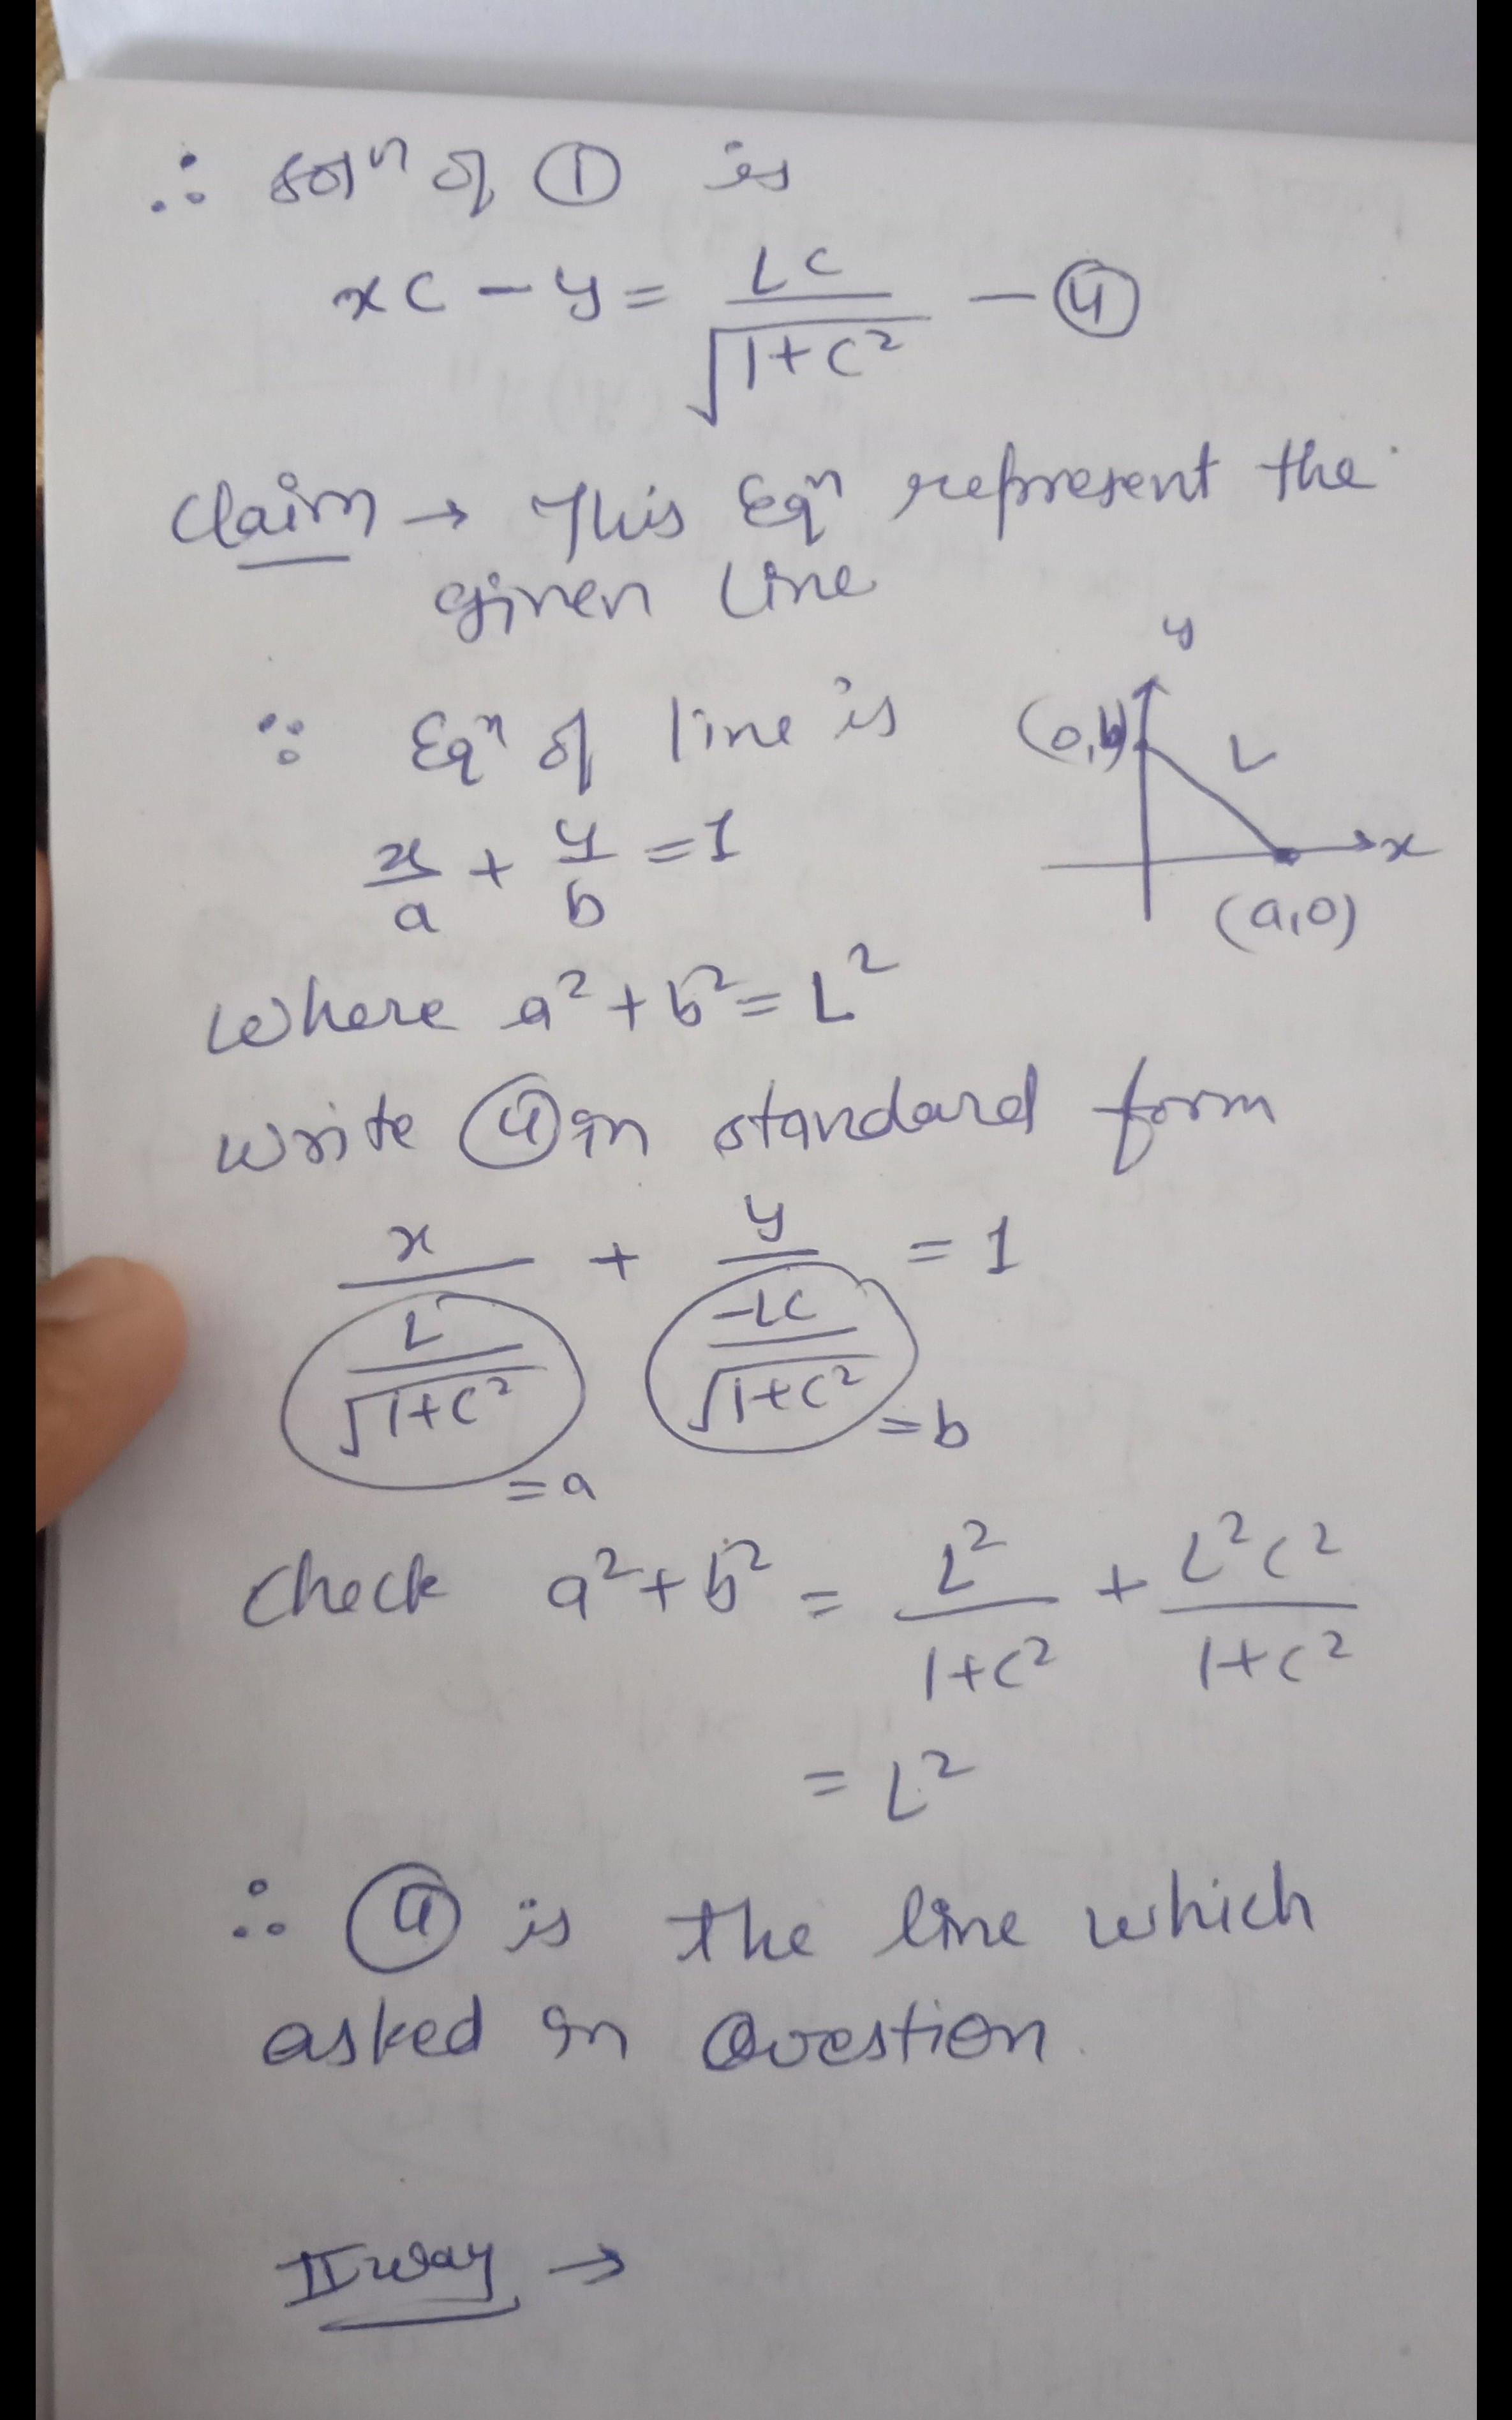 ∴ solⁿ of ① is
xc - y = LC / √(1+c²) - ④
Claim → This Eqⁿ represent the
given line
∵ Eqⁿ of line is
x/a + y/b = 1
y
(0,b)
L
x
(a,0)
where a² + b² = L²
write ④ in standard form
x / (L/√(1+c²)) + y / (-LC/√(1+c²)) = 1
= a
= b
check a² + b² = L²/(1+c²) + L²c²/(1+c²)
= L²
∴ ④ is the line which
asked in Question.
II way →